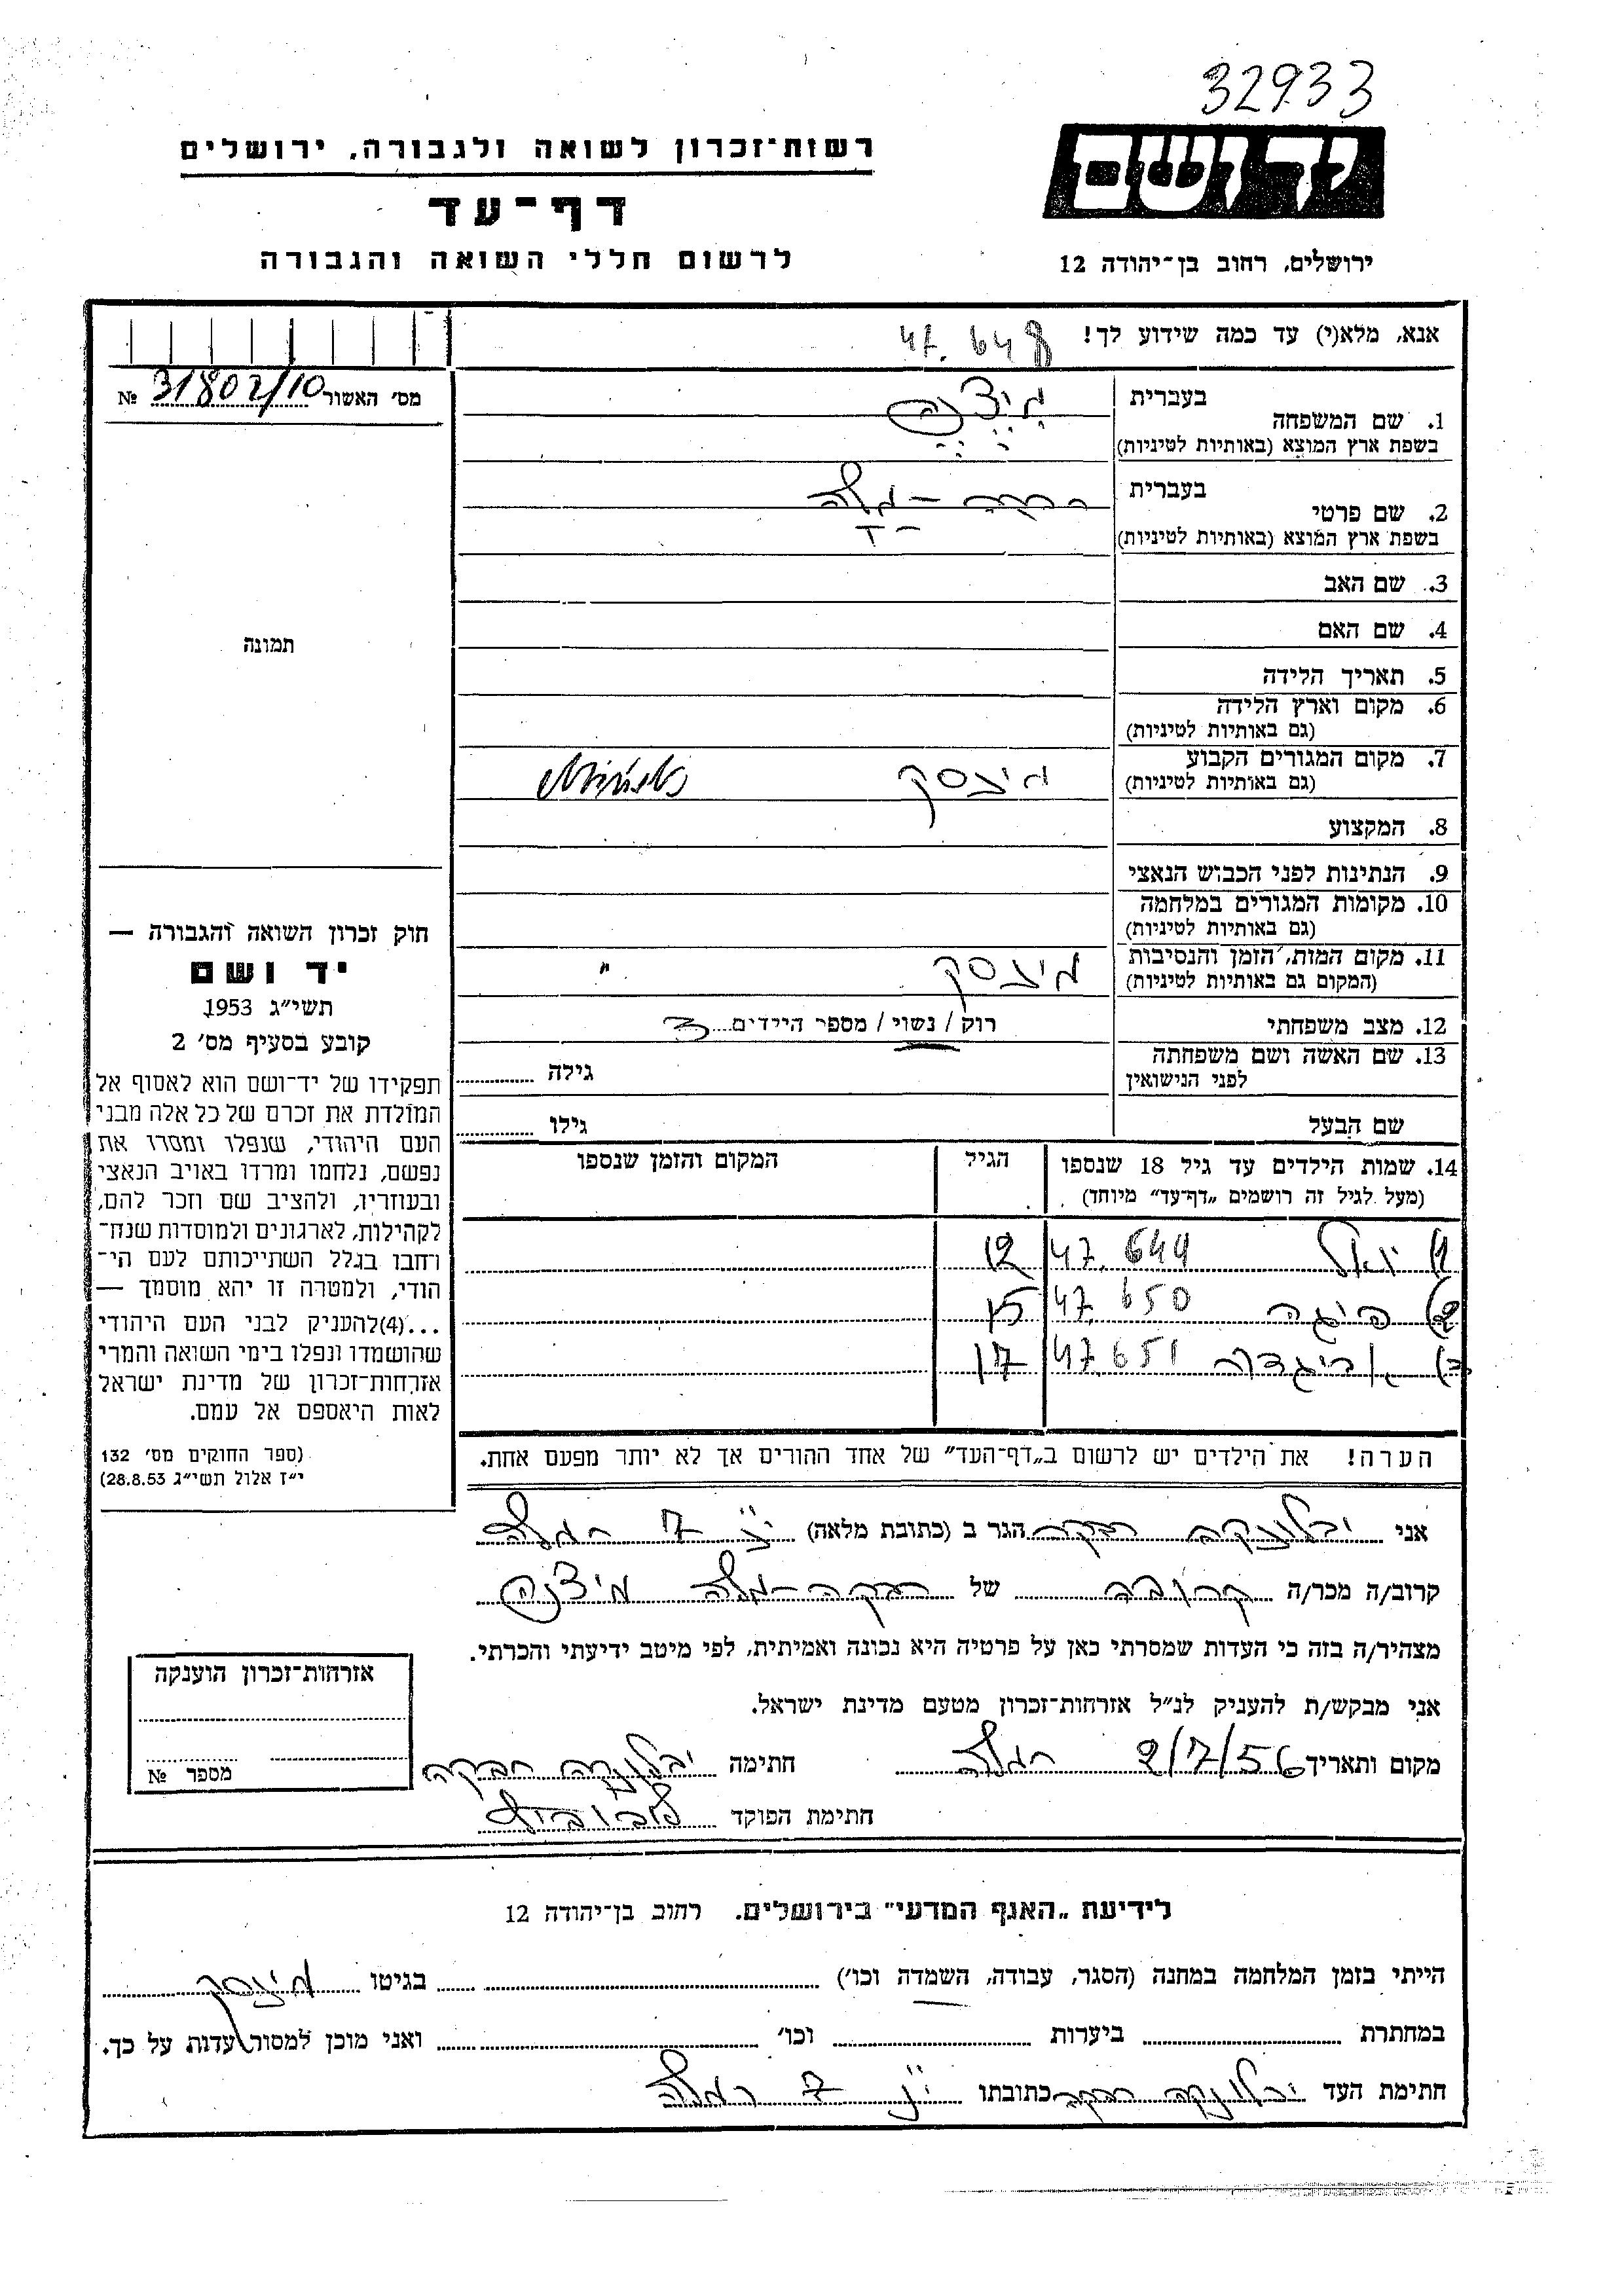 32933
יד ושם
רשות־זכרון לשואה ולגבורה, ירושלים
דף־עד
לרשום חללי השואה והגבורה
ירושלים, רחוב בן־יהודה 12
אנא, מלא(י) עד כמה שידוע לך!
47.648
מס׳ האשור 31802/10 №
בעברית
1. שם המשפחה
בשפת ארץ המוצא (באותיות לטיניות)
בעברית רבקה - מלה
2. שם פרטי
בשפת ארץ המוצא (באותיות לטיניות)
3. שם האב
4. שם האם
תמונה
5. תאריך הלידה
6. מקום וארץ הלידה
(גם באותיות לטיניות)
7. מקום המגורים הקבוע מינסק
(גם באותיות לטיניות)
8. המקצוע
9. הנתינות לפני הכבוש הנאצי
10. מקומות המגורים במלחמה
(גם באותיות לטיניות)
11. מקום המות, הזמן והנסיבות מינסק "
(המקום גם באותיות לטיניות)
12. מצב משפחתי רוק / נשוי / מספר הילדים 3
13. שם האשה ושם משפחתה גילה
לפני הנישואין
שם הבעל גילו
14. שמות הילדים עד גיל 18 שנספו הגיל המקום והזמן שנספו
(מעל לגיל זה רושמים „דף־עד״ מיוחד)
1) 47.649 12
2) פיגה 47.650 15
3) 47.651 17
הערה! את הילדים יש לרשום ב„דף־העד״ של אחד ההורים אך לא יותר מפעם אחת.
חוק זכרון השואה והגבורה —
יד ושם
תשי״ג 1953
קובע בסעיף מס׳ 2
תפקידו של יד־ושם הוא לאסוף אל
המולדת את זכרם של כל אלה מבני
העם היהודי, שנפלו ומסרו את
נפשם, נלחמו ומרדו באויב הנאצי
ובעוזריו, ולהציב שם וזכר להם,
לקהילות, לארגונים ולמוסדות שנח־
רחבו בגלל השתייכותם לעם הי־
הודי, ולמטרה זו יהא מוסמך —
...(4) להעניק לבני העם היהודי
שהושמדו ונפלו בימי השואה והמרי
אזרחות־זכרון של מדינת ישראל
לאות היאספם אל עמם.
(ספר החוקים מס׳ 132
י״ז אלול תשי״ג 28.8.53)
אני יבלונקה רבקה הגר ב (כתובת מלאה) 7 רמלה
קרוב/ה מכר/ה קרובה של רבקה-מלה
מצהיר/ה בזה כי העדות שמסרתי כאן על פרטיה היא נכונה ואמיתית, לפי מיטב ידיעתי והכרתי.
אני מבקש/ת להעניק לנ״ל אזרחות־זכרון מטעם מדינת ישראל.
מקום ותאריך 2/7/56 רמלה חתימה יבלונקה רבקה
חתימת הפוקד
אזרחות־זכרון הוענקה
מספר №
לידיעת „האגף המדעי״ בירושלים. רחוב בן־יהודה 12
הייתי בזמן המלחמה במחנה (הסגר, עבודה, השמדה וכו׳) בגיטו מינסק
במחתרת ביערות וכו׳ ואני מוכן למסור עדות על כך.
חתימת העד יבלונקה רבקה כתובתו 7 רמלה